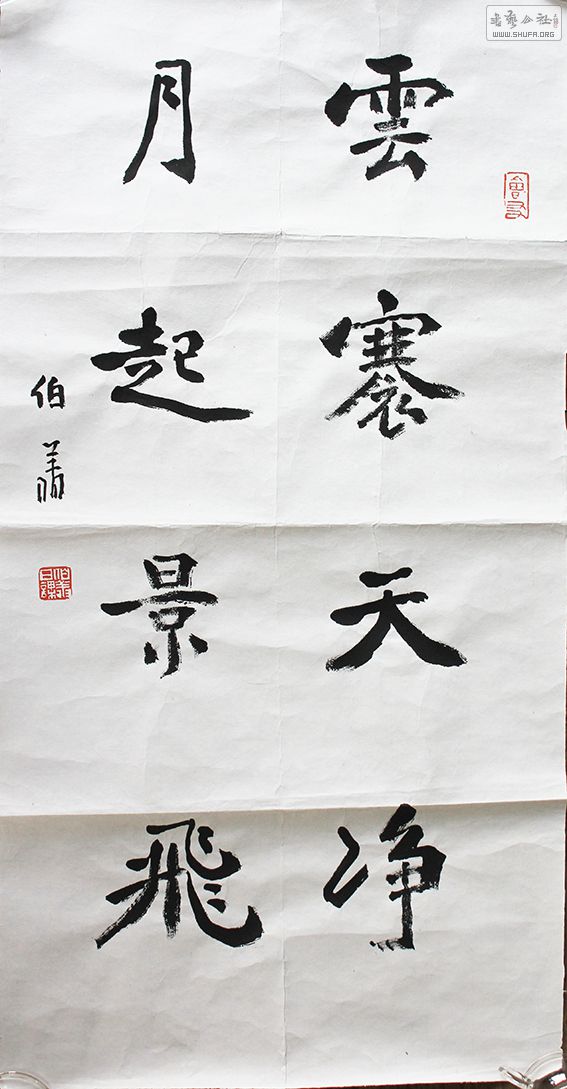 雲褰天净
月起景飛
伯
書藝公社
WWW.SHUFA.ORG